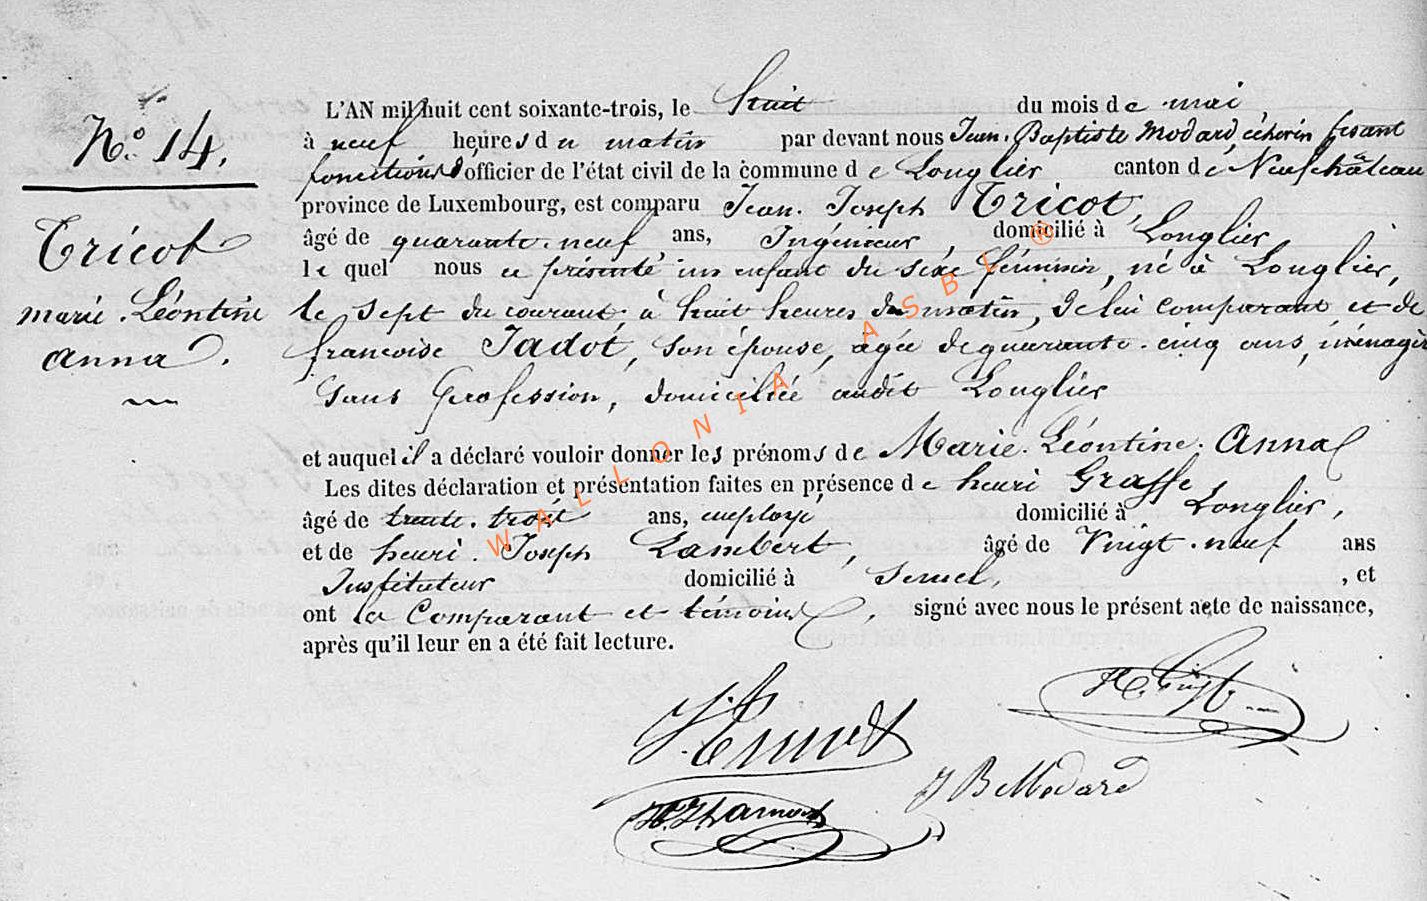 N.° 14.
Tricot
marie. Léontine
anna.
L'AN mil huit cent soixante-trois, le huit du mois de mai
à neuf heures du matin par devant nous Jean. Baptiste Modard, échevin fesant
fonctions d'officier de l'état civil de la commune de Longlier canton de Neufchâteau
province de Luxembourg, est comparu Jean. Joseph Tricot,
âgé de quarante. neuf ans, Ingénieur, domicilié à Longlier
lequel nous a présenté un enfant du sexe féminin, né à Longlier,
le sept du courant, à huit heures du matin, de lui comparant et de
francoise Jadot, son épouse, agée de quarante. cinq ans, ménagèr
Sans Profession, domiciliée audit Longlier
et auquel il a déclaré vouloir donner les prénoms de Marie. Léontine. Anna
Les dites déclaration et présentation faites en présence de henri
âgé de trente. trois ans, employé domicilié à Longlier,
et de henri. Joseph Lambert, âgé de Vingt. neuf ans
Instituteur domicilié à Semel, , et
ont le Comparant et témoins, signé avec nous le présent acte de naissance,
après qu'il leur en a été fait lecture.
J B Modard
WALLONIA ASBL ®